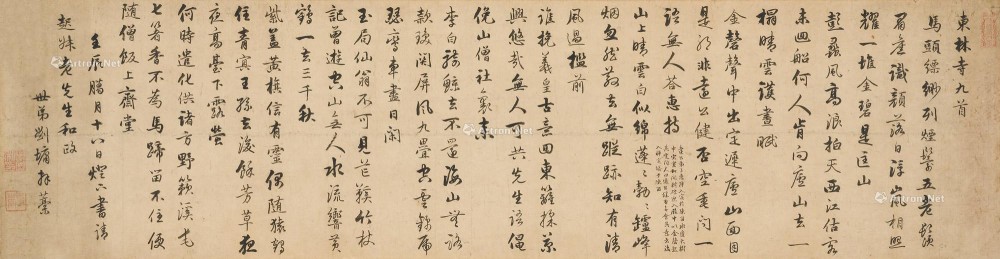 東林寺九首
馬頭縹緲列煙鬟五老鬚
眉盡識顏落日浮嵐相照
耀一堆金碧是匡山
彭蠡風高浪拍天西江估客
未迴船何人肯向廬山去一
榻晴雲護晝眠
金磬聲中出定遲廬山面目
是耶非遠公健否空重問一
語無人答惠持
山上晴雲白似綿蓬蓬勃勃鑪峰
烟忽然散去無蹤跡知有清
風過檻前
誰挽羲皇古意回東籬採菊
興悠哉無人可共先生語僶
俛山僧社裏來
李白騎鯨去不還海山無路
款關屏風九疊空雲錦
車盡日閒
玉局仙翁不可見芒鞵竹杖
記曾遊空山無人水流響黃
鶴一去三千秋
紫蓋黃旗信有靈偶隨猿鶴
住青冥王孫去後餘芳草夜
夜高臺下露螢
何時遣化供諸方野籟溪毛
七箸香不為馬蹄留不住便
隨僧飯上齋堂
臘月十八日燈下書請
老先生和政
世弟劉墉拜藁